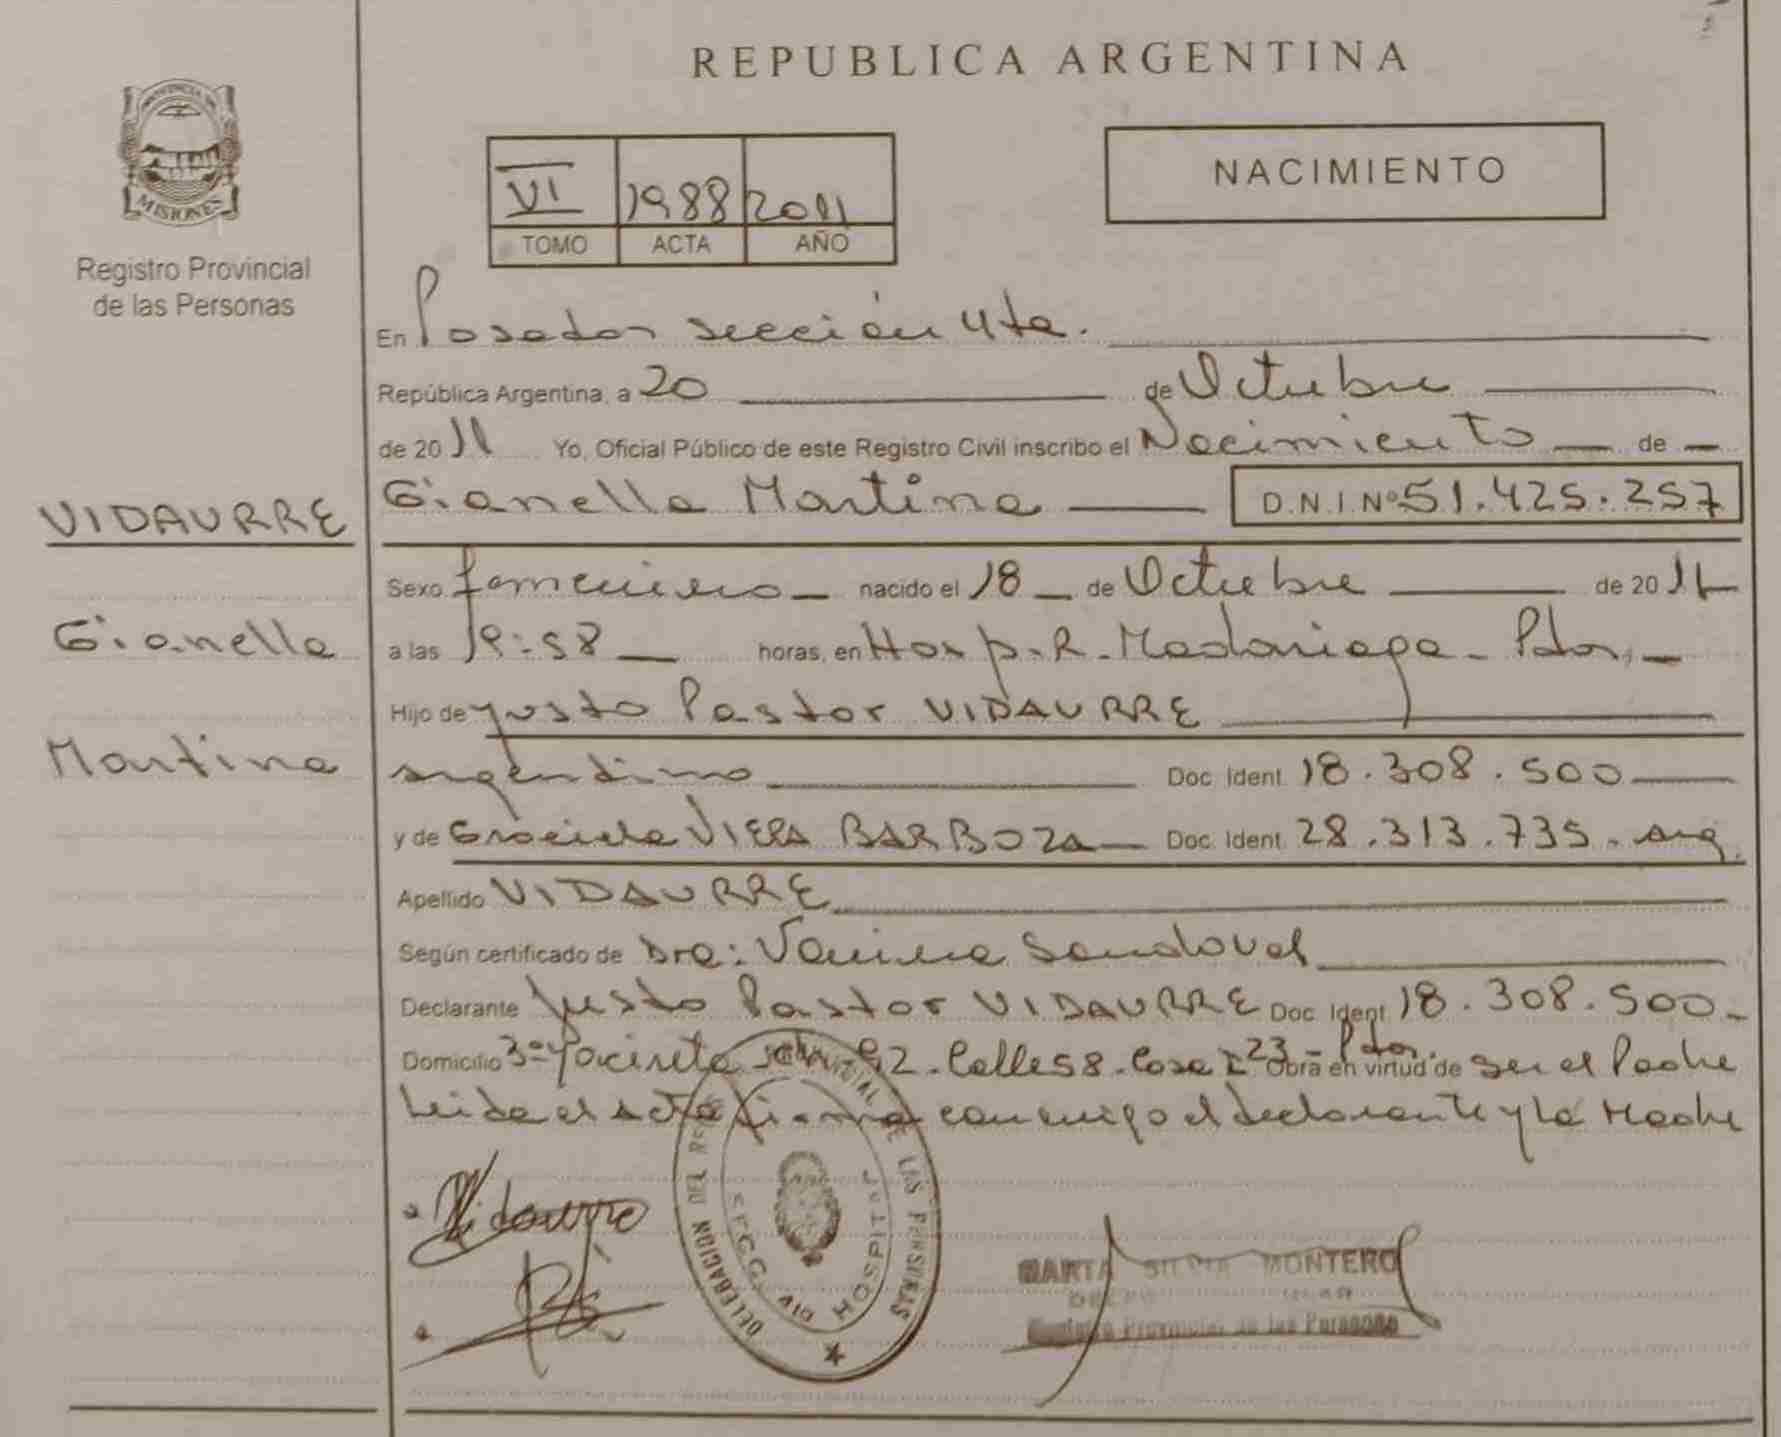 REPUBLICA ARGENTINA
MISIONES
Registro Provincial
de las Personas
VI 1988 2011
TOMO ACTA AÑO
NACIMIENTO
En Posadas sección 4ta.
República Argentina, a 20 de Octubre
de 2011 Yo, Oficial Público de este Registro Civil inscribo el Nacimiento de
VIDAURRE
Gianella Martina D.N.I.Nº 51.425.257
Sexo femenino nacido el 18 de Octubre de 2011
Gianella
a las 19:58 horas, en Hosp. R. Madariaga - Pdas,
Hijo de Justo Pastor VIDAURRE
Martina
argentino Doc. Ident. 18.308.500
y de Graciela VIERA BARBOZA Doc. Ident. 28.313.735. arg.
Apellido VIDAURRE
Según certificado de Dra: Vanina Sandoval
Declarante Justo Pastor VIDAURRE Doc. Ident. 18.308.500
Domicilio Yacireta 92 - Calle 58 - Casa 23 - Pdas. Obra en virtud de ser el Padre
Leida el acta firma conmigo el declarante y la Madre
Vidaurre
DELEGACION DEL REG. PROVINCIAL DE LAS PERSONAS
SECC. 4ta HOSPITAL
MARTA SILVIA MONTERO
Registro Provincial de las Personas